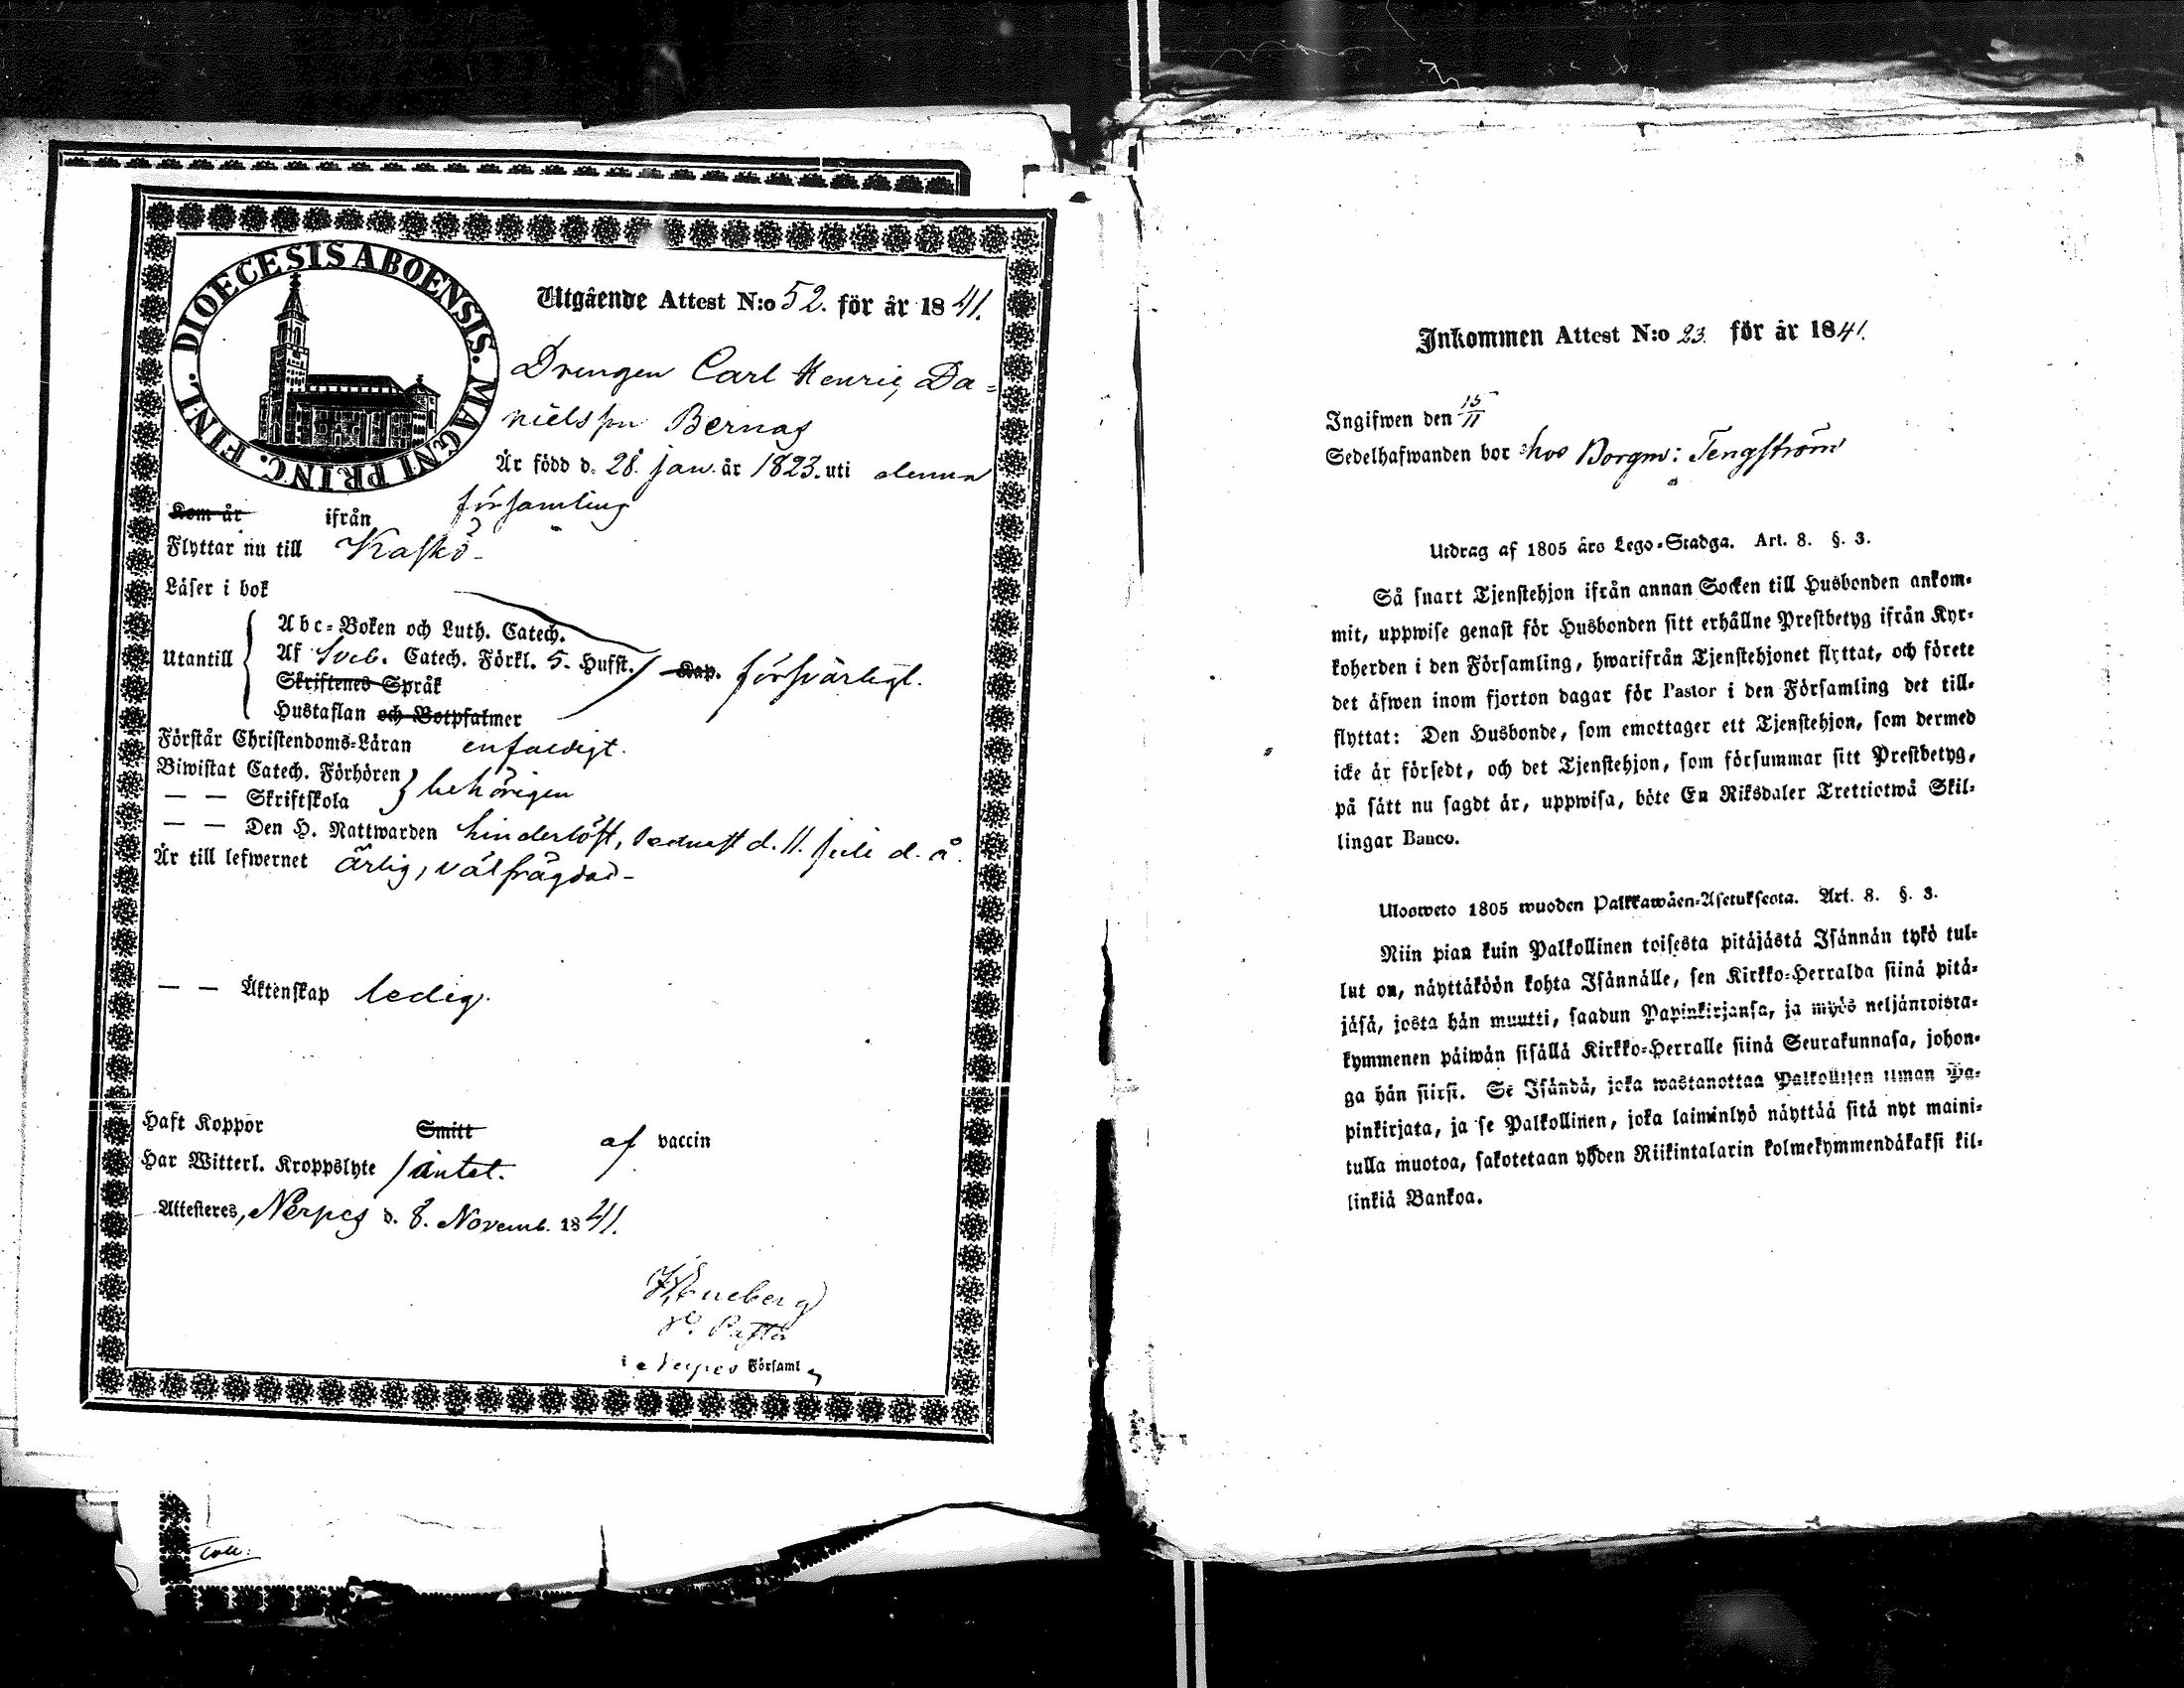 DIOECESIS ABOENSIS. MAGNI PRINC. FINL.
Utgående Attest N:o 52. för år 1841.
Drengen Carl Henric Da=
nielsson Bernas
Är född d. 28. jan. år 1823. uti denna
församling
Kom år ifrån
Flyttar nu till Kaskö
Läser i bok
Utantill
Abc=Boken och Luth. Catech.
Af Sveb. Catech. Förkl. 5. Hufst. Kap. försvarligt.
Skriftenes Språk
Hustaflan och Botpsalmer
Förstår Christendoms=Läran enfaldigt.
Biwistat Catech. Förhören
— — Skriftskola behörigen
— — Den H. Nattwarden hinderlöst, sednast d. 11. juli d. å.
Är till lefwernet ärlig, välfrägdad
— — Äktenskap ledig.
Haft Koppor Smitt af vaccin
Har Witterl. Kroppslyte / äntet.
Attesteres, Nerpes d. 8. Novemb. 1841.
i Nerpes Församl
Coll:
Inkommen Attest N:o 23. för år 1841.
Ingifwen den 15/11
Sedelhafwanden bor hos Borgm: Tengström
Utdrag af 1805 års Lego=Stadga. Art. 8. §. 3.
Så snart Tjenstehjon ifrån annan Socken till Husbonden ankom=
mit, uppwise genast för Husbonden sitt erhållne Prestbetyg ifrån Kyr=
koherden i den Församling, hwarifrån Tjenstehjonet flyttat, och förete
det äfwen inom fjorton dagar för Pastor i den Församling det till=
flyttat: Den Husbonde, som emottager ett Tjenstehjon, som dermed
icke är försedt, och det Tjenstehjon, som försummar sitt Prestbetyg,
på sätt nu sagdt är, uppwisa, böte En Riksdaler Trettiotwå Skil=
lingar Banco.
Ulosweto 1805 wuoden Palkkawäen=Asetuksesta. Art. 8. §. 3.
Niin pian kuin Palkollinen toisesta pitäjästä Isännän tykö tul=
lut on, näyttäköön kohta Isännälle, sen Kirkko=Herralda siinä pitä=
jäsä, josta hän muutti, saadun Papinkirjansa, ja myös neljäntoista=
kymmenen päiwän sisällä Kirkko=Herralle siinä Seurakunnasa, johon=
ga hän siirsi. Se Isändä, joka wastanottaa Palkollisen ilman Pa=
pinkirjata, ja se Palkollinen, joka laiminlyö näyttää sitä nyt maini=
tulla muotoa, sakotetaan yhden Riikintalarin kolmekymmendäkaksi kil=
linkiä Bankoa.